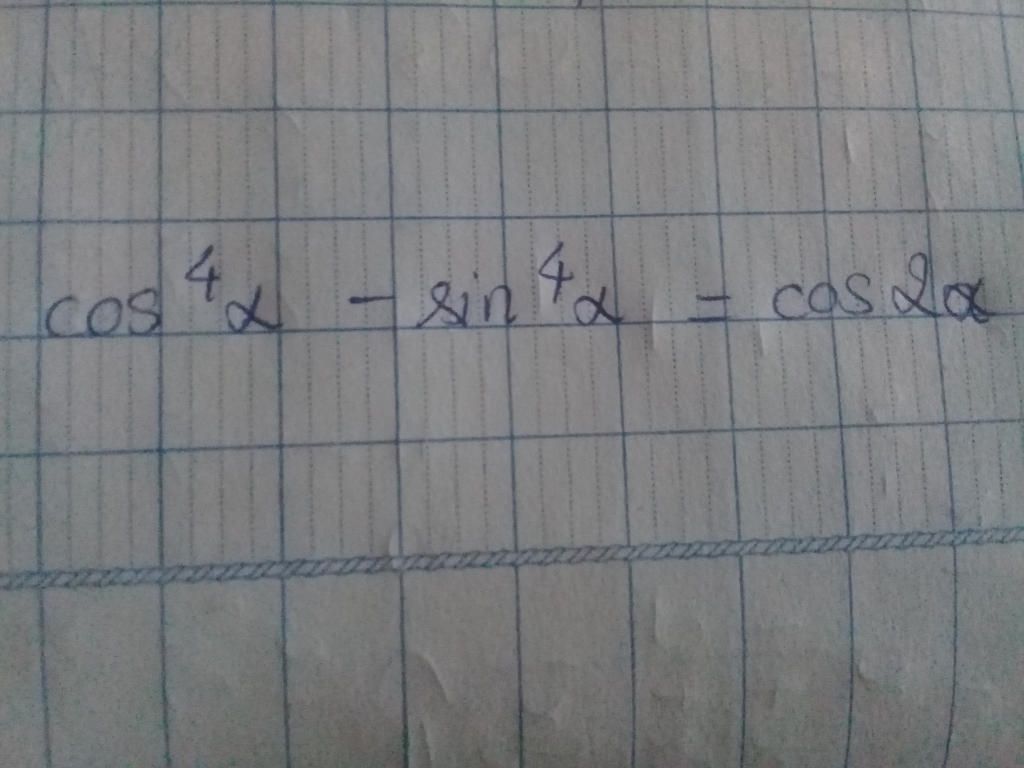 cos⁴α - sin⁴α = cos2α